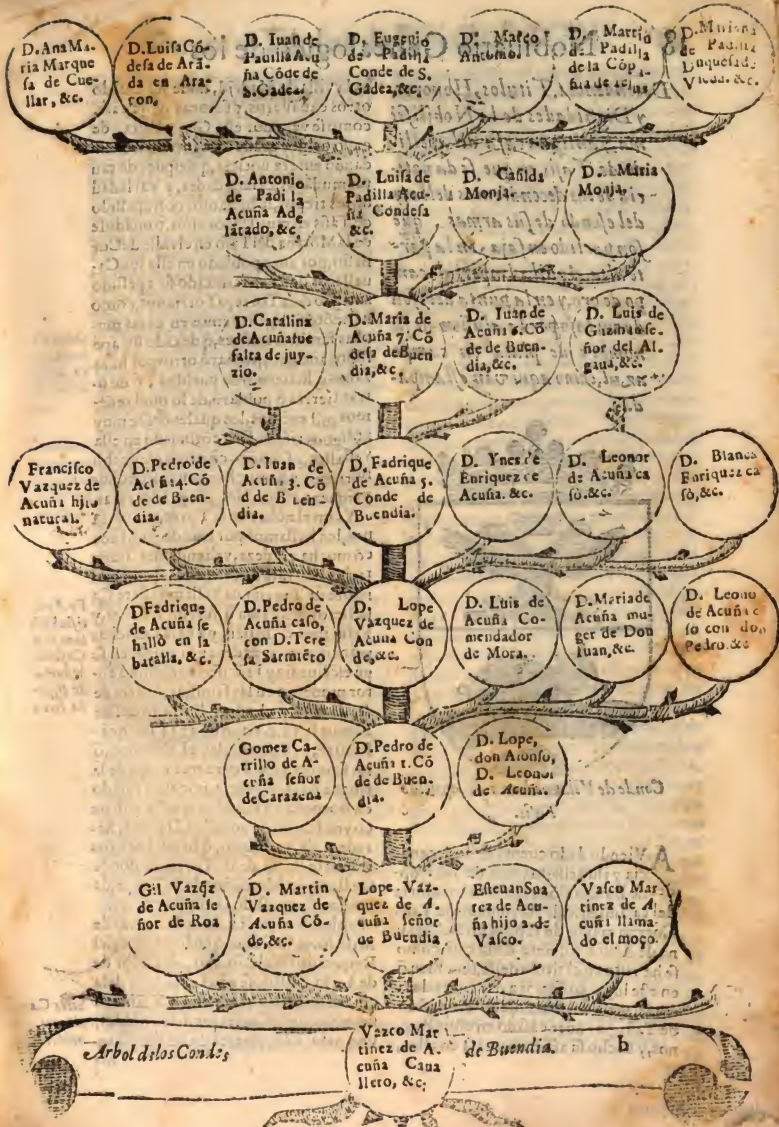 D. Ana Ma-
ria Marque
sa de Cue-
llar, &c.
D. Luisa Cō-
desa de Arā-
da en Ara-
con.
D. Iuan de
Padilla Acu
ña Cōde de
S. Gadea.
D. Eugenio
de Padilla
Conde de S.
Gadea, &c,
D. Mateo
Antonio.
D. Martin
de Padilla
de la Cōp
ñia de Iesus
D.
de Padilla
Duquesa de
Vzeda. &c.
D. Antonio
de Padilla
Acuña Ade
lātado, &c,
D. Luisa de
Padilla Acu-
ña Condesa
&c.
D. Casilda
Monja.
D. Maria
Monja.
D. Catalina
de Acuña fue
falta de juy-
zio.
D. Maria de
Acuña 7. Cō
desa de Buen
dia, &c.
D. Iuan de
Acuña 6. Cō
de de Buen-
dia, &c.
D. Luis de
Guzman se-
ñor del Al-
gaua, &c.
Francisco
Vazquez de
Acuña hijo
natural.
D. Pedro de
Acuña 4. Cō
de de Buen-
dia.
D. Iuan de
Acuña 3. Cō
d de Buen-
dia.
D. Fadrique
de Acuña 5.
Conde de
Buendia.
D. Ynes de
Enriquez de
Acuña. &c.
D. Leonor
de Acuña ca
sò. &c.
D. Blanca
Enriquez ca
sò, &c.
D Fadrique
de Acuña se
hallò en la
batalla, &c.
D. Pedro de
Acuña caso,
con D. Tere
sa Sarmiēto
D. Lope
Vazquez de
Acuña Con
de, &c.
D. Luis de
Acuña Co-
mendador
de Mora.
D. Maria de
Acuña mu-
ger de Don
Iuan, &c.
D. Leono
de Acuña c
so con don
Pedro. &c
Gomez Ca-
rrillo de A-
cuña señor
de Carazena
D. Pedro de
Acuña 1. Cō
de de Buen-
dia.
D. Lope,
don Alonso,
D. Leonor
de Acuña.
Gil Vazq̃z
de Acuña se
ñor de Roa
D. Martin
Vazquez de
Acuña Cō-
de, &c.
Lope Vaz-
quez de A-
cuña señor
de Buendia
Esteuan Sua
rez de Acu-
ña hijo 2. de
Vasco.
Vasco Mar
tinez de A
cuña llama-
do el moço.
Arbol de los Condes
Vazco Mar
tinez de A.
cuña Caua
llero, &c;
de Buendia.
b